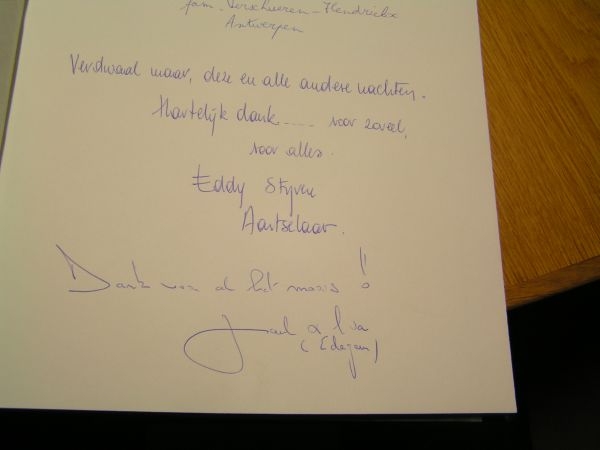 fam. Verschueren-Hendrickx
Antwerpen
Verdwaal maar, deze en alle andere nachten.
Hartelijk dank..... voor zoveel,
voor alles.
Eddy Styven
Aartselaar.
Dank voor al het moois !!
Paul &
(Edegem)